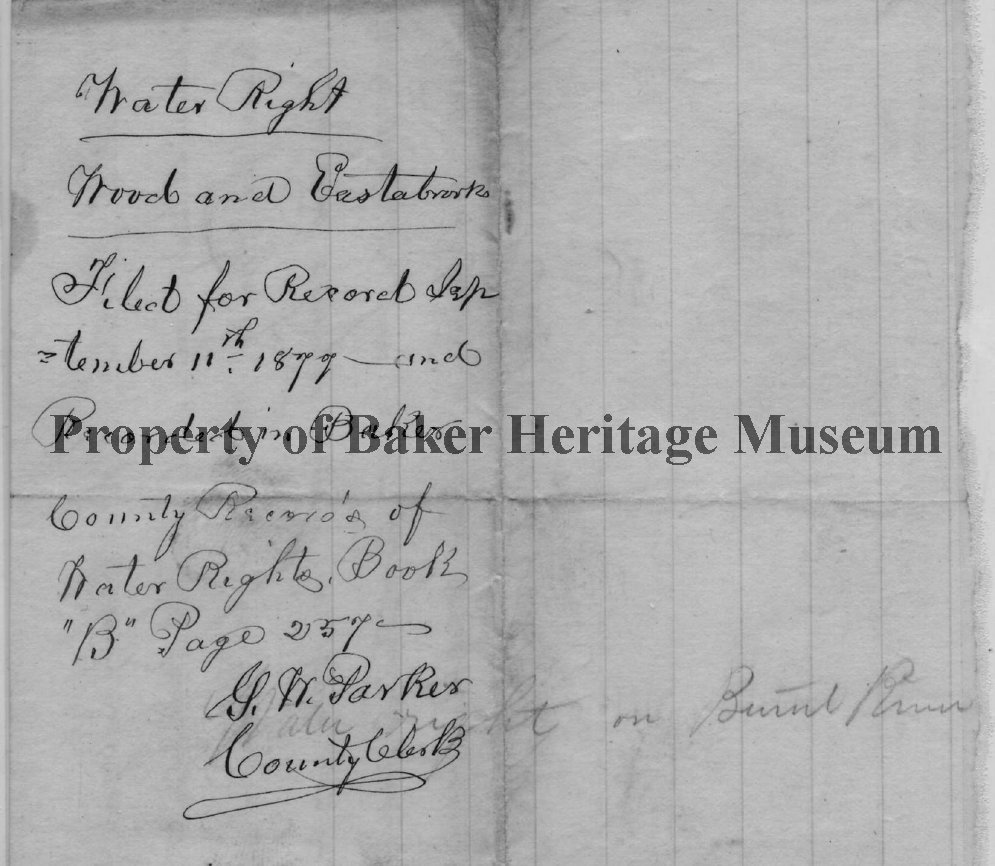 Water Right
Wood and Eastabrooks
Filed for Record Sep
=tember 11th. 1877 — and
Recorded in Baker
Property of Baker Heritage Museum
County Records of
Water Rights, Book
"B" Page 257 —
G. W. Parker
County Clerk
Water right on Burnt River